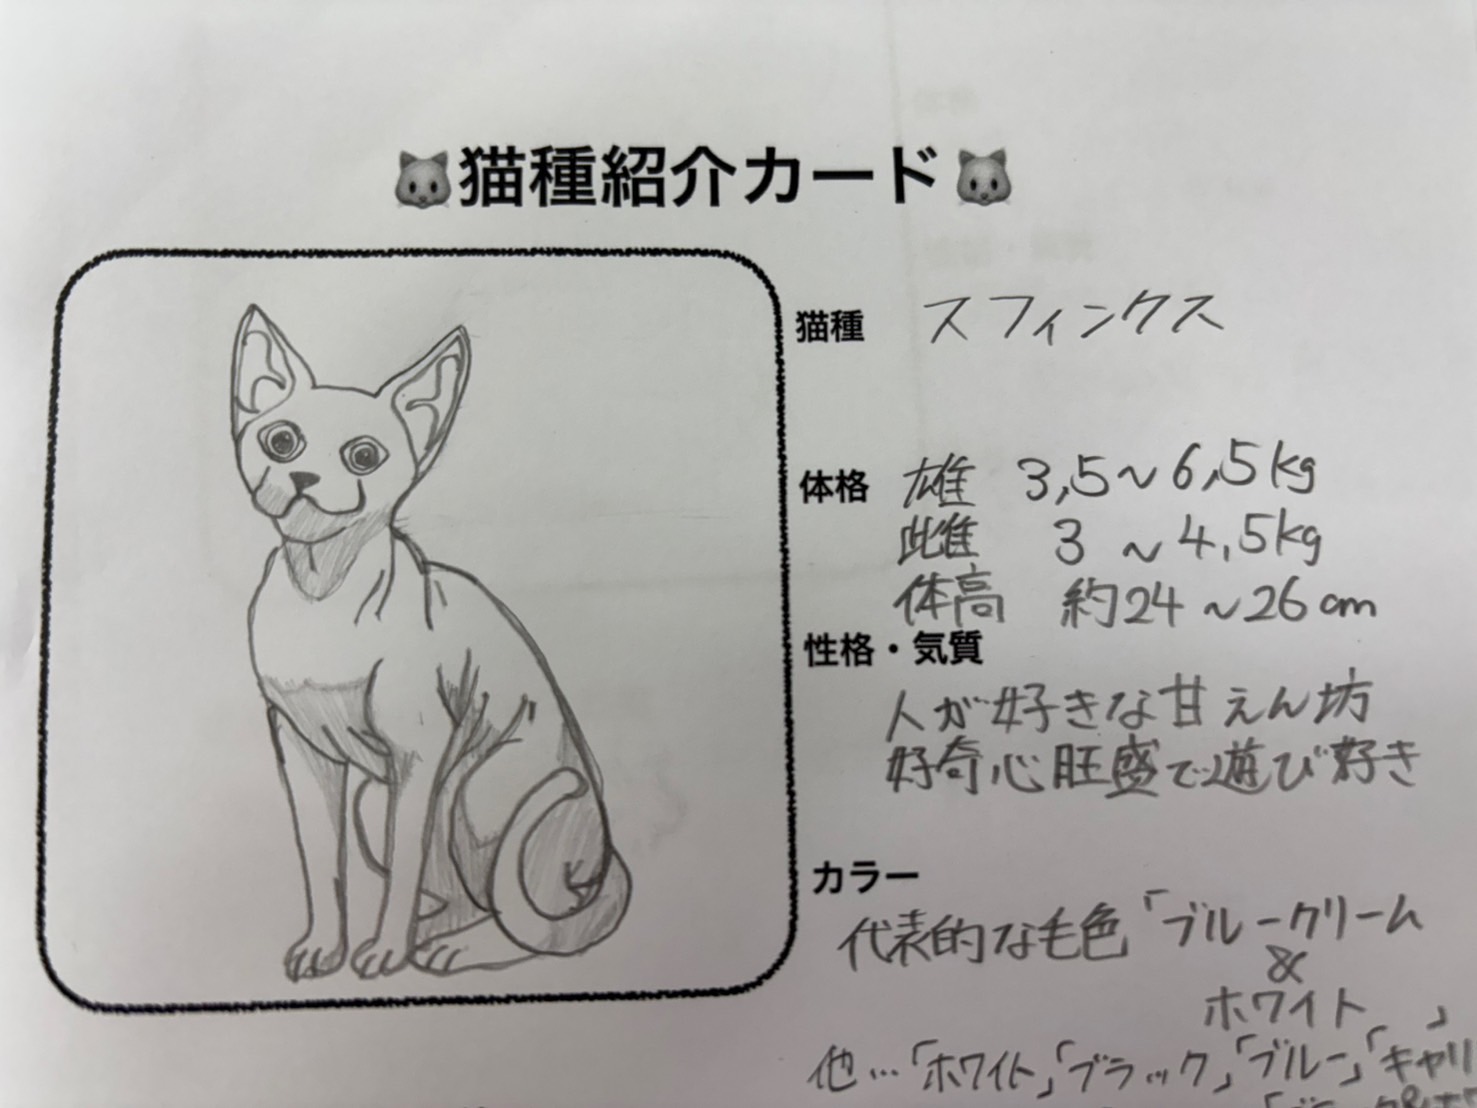 🐱猫種紹介カード🐱
猫種 スフィンクス
体格 雄 3,5~6,5kg
雌 3 ~4,5kg
体高 約24~26cm
性格・気質
人が好きな甘えん坊
好奇心旺盛で遊び好き
カラー
代表的な毛色「ブルークリーム
&
ホワイト 」
他…「ホワイト」「ブラック」「ブルー」「キャリ